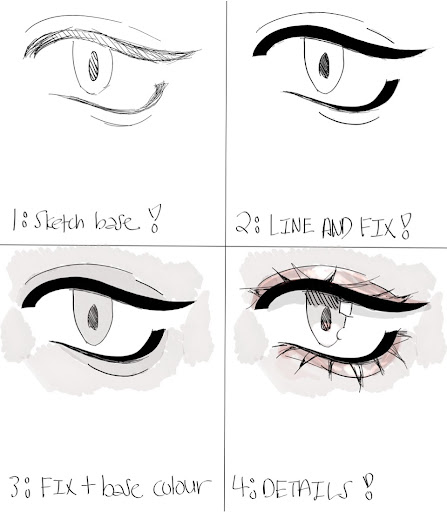 1: Sketch base !
2: LINE AND FIX !
3: FIX + base colour
4: DETAILS !